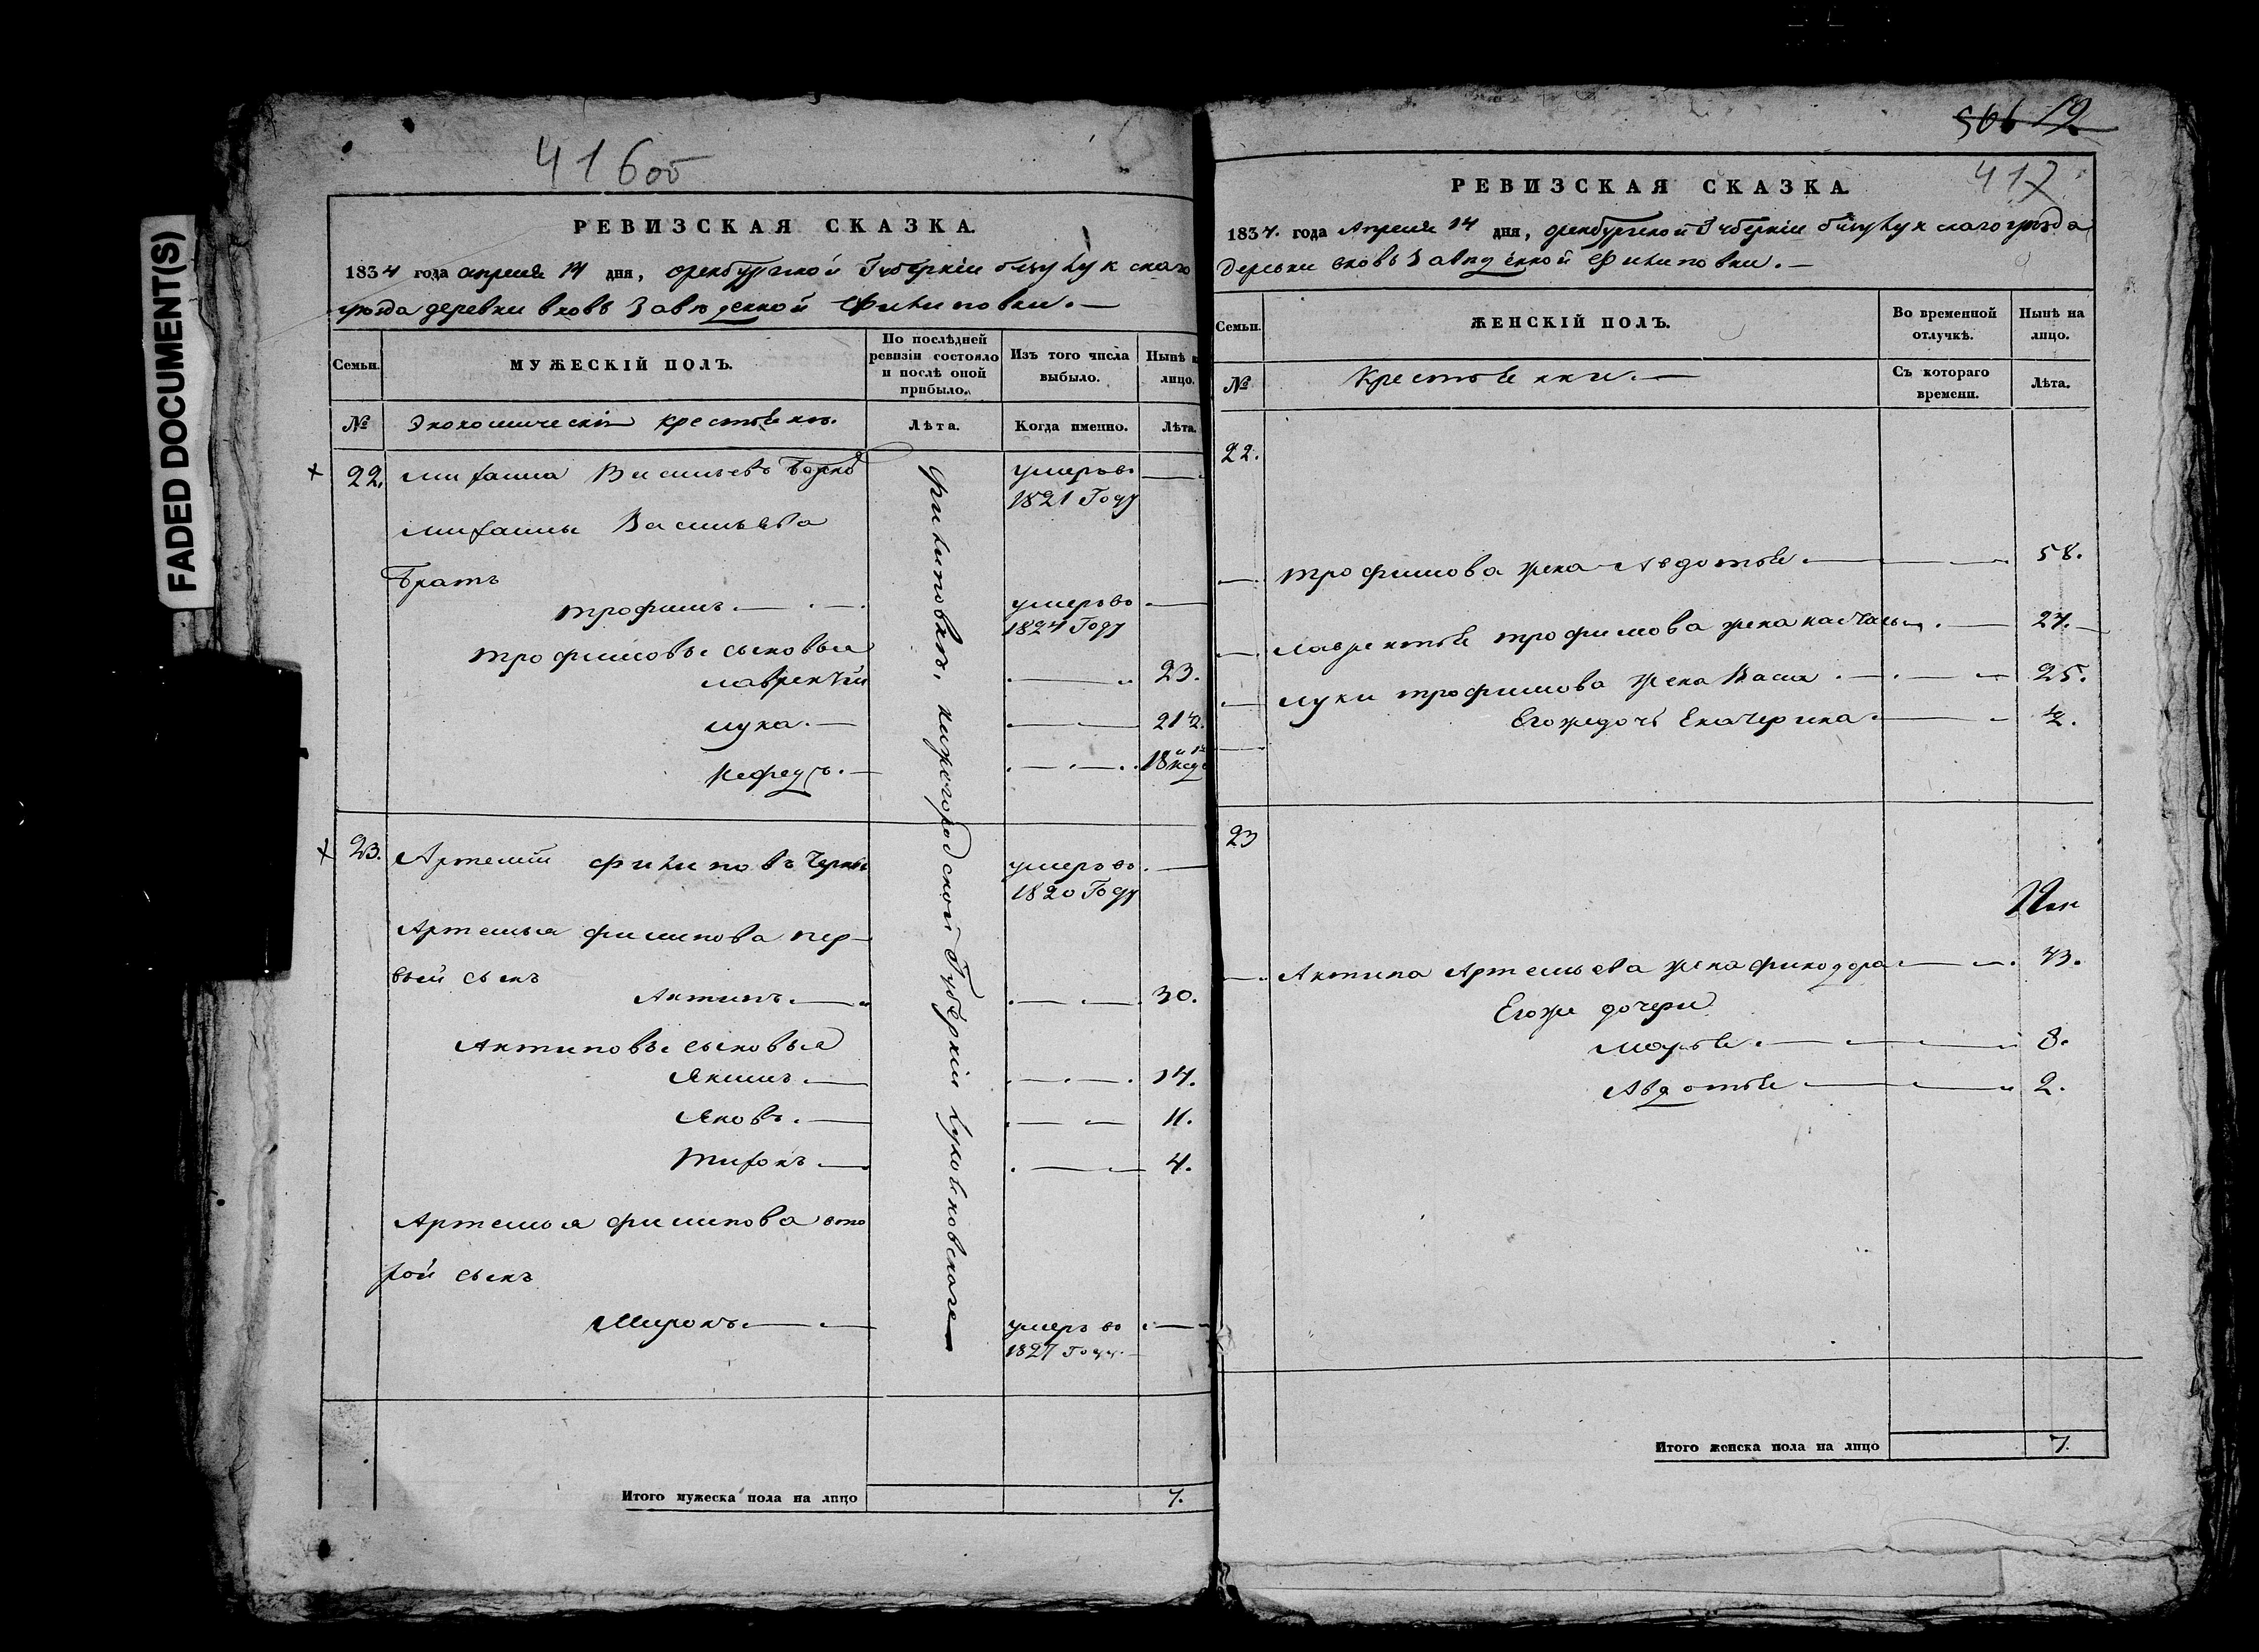 FADED DOCUMENT(S)
416об
РЕВИЗСКАЯ СКАЗКА.
1834 года апреля 14 дня, оренбургской Губернiи бузулукскаго
уезда деревни вновь Заведенной Филиповки.
Семьи.
МУЖЕСКIЙ ПОЛЪ.
По послѣдней ревизiи состояло и послѣ оной прибыло.
Изъ того числа выбыло.
Нынѣ
лицо.
№
Экономическiи крестьяне.
Лѣта.
Когда именно.
Лѣта.
22. михаила Васильевъ
умеръ в
1821 Году
михаилы Васильева
братъ
трофимъ.
умеръ во
1824 Году
трофимовы сыновья
лаврентий 23.
лука. 21
нефедъ. 18
филиповки, нижегородской Губернiи лукояновскаго
23. Артемiй филиповъ
умеръ во
1820 Году
Артемья филипова пер-
вый сынъ
Антипъ. 30.
Антиповы сыновья
Якимъ. 14.
Яковъ. 11.
Тихонъ 4.
Артемья филипова вто
рой сынъ
Миронъ
умеръ во
1827 Году.
Итого мужеска пола на лицо 7.
506 19
417
РЕВИЗСКАЯ СКАЗКА.
1834. года Апреля 14 дня, оренбургской Губернiи бузулукскаго уезда
деревни вновь Заведенной Филиповки.
Семьи.
ЖЕНСКIЙ ПОЛЪ.
Во временной отлучкѣ.
Нынѣ на лицо.
№
Крестьянки.
Съ котораго времени.
Лѣта.
22.
трофимова жена Авдотья 58.
лаврентья трофимова жена настасья. 24.
луки трофимова жена Васа. 25.
Егожедочь Екатерина.
23
Антипа Артемьева жена финодора 43.
Егоже дочери
марья. 8.
Авдотья 2.
Итого женска пола на лицо 7.